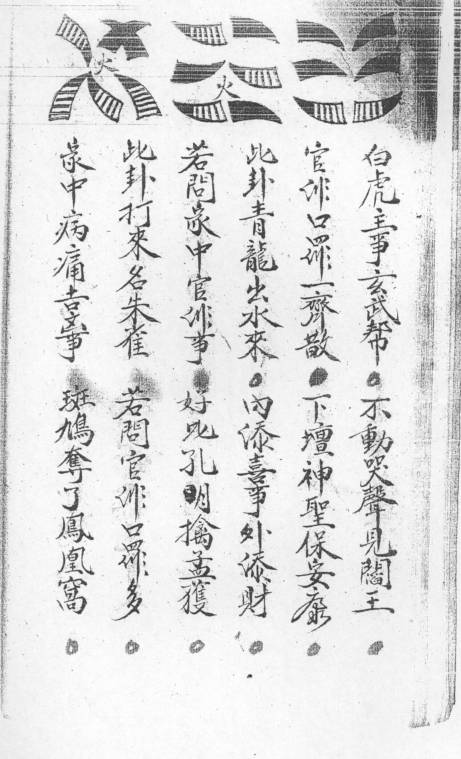 火
火
白虎主事玄武幇 不動哭聲見閻王
官非口舌一齊散 下壇神聖保安康
此卦青龍出水來 內添喜事外添財
若問家中官非事 好比孔明擒孟獲
此卦打來名朱雀 若問官非口舌多
家中病痛 事 斑鳩奪了鳳凰窩